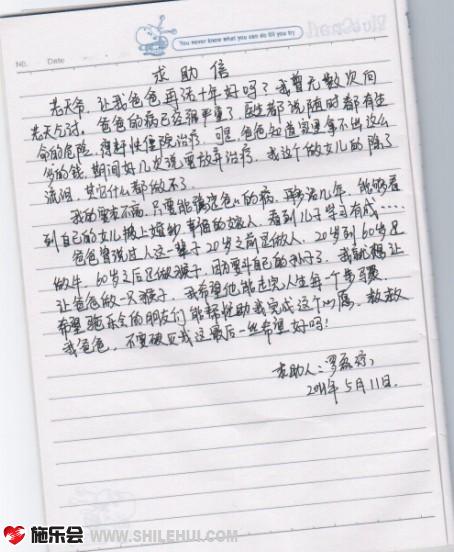 You never know what you can do till you try
NO.
Date
求助信
老天爷,让我爸爸再活十年好吗?我曾无数次问
老天在讨。爸爸的病已经很严重了,医生都说随时都有生
命的危险,得转性医院治疗,可是,爸爸知道家里拿不出这么
多的钱,期间好几次说要放弃治疗,我这个做女儿的除了
流泪,其它什么都做不了。
我的要求不高,只要能让爸爸的病,再多活几年,能够看
到自己的女儿披上婚纱,幸福的嫁人,看到儿子学习有成……
爸爸曾说过人这一辈子20岁之前是做人,20岁到60岁是
做牛,60岁之后是做猴子,因为要斗自己的孙子了。我就想让
让爸爸做一只猴子,我希望他能走完人生每一个步骤。
希望施乐会的朋友们能帮忙助我完成这个心愿,救救
我爸爸,不要破灭我这最后一丝希望好吗!
求助人:罗
2011年5月11日.
施乐会 WWW.SHILEHUI.COM